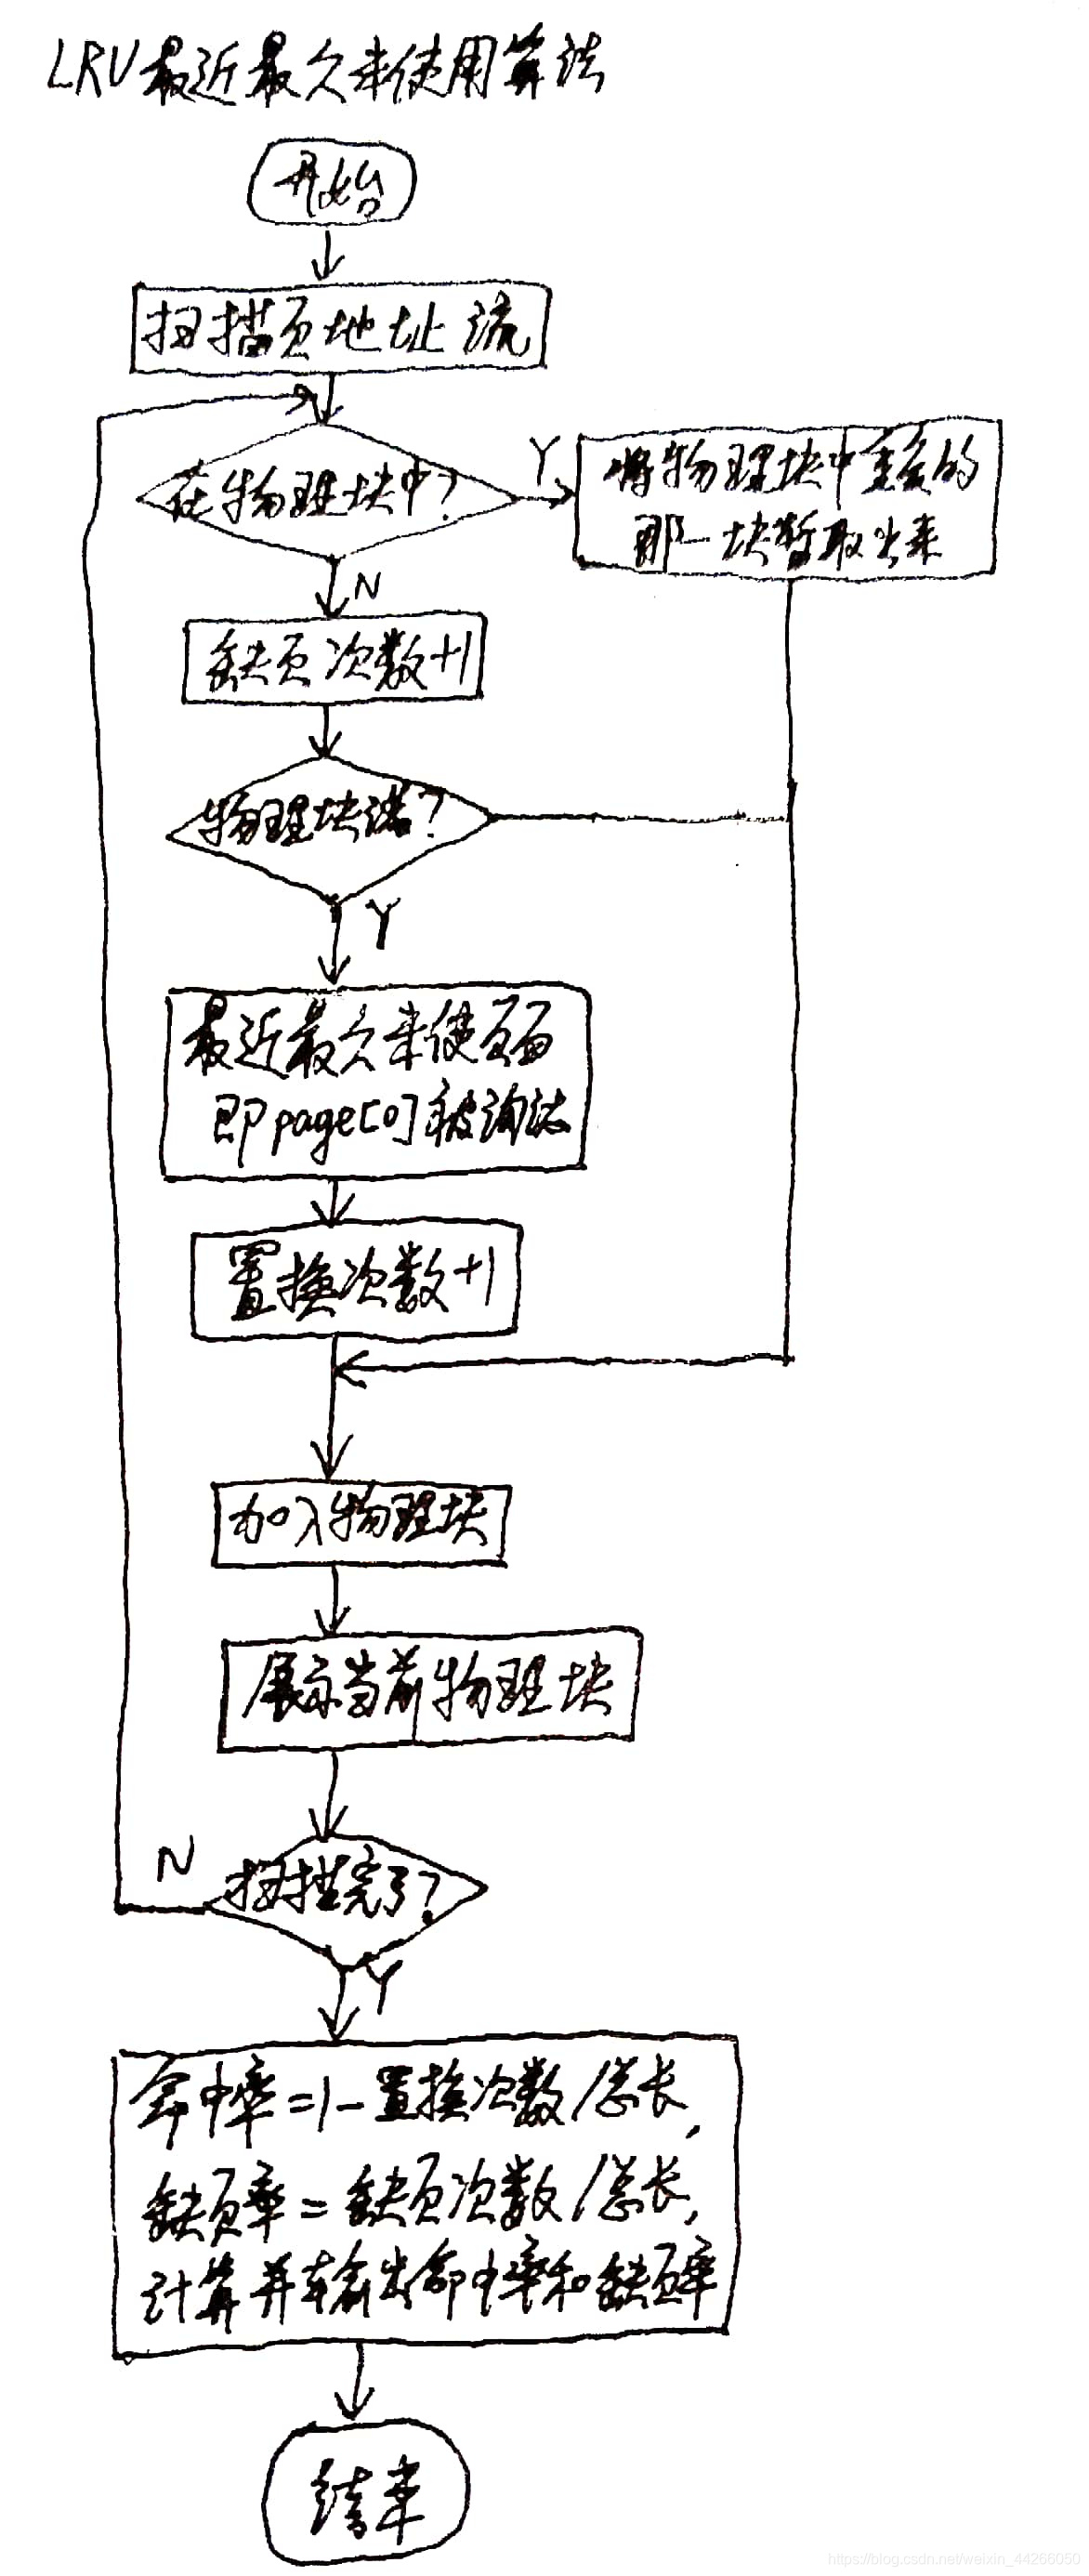 LRU最近最久未使用算法
开始
扫描页地址流
在物理块中?
Y
将物理块中重复的
那一块暂取出来
N
缺页次数+1
物理块满?
Y
最近最久未使页面
即page[0]被淘汰
置换次数+1
加入物理块
展示当前物理块
扫描完了?
N
Y
命中率=1-置换次数/总长,
缺页率=缺页次数/总长,
计算并输出命中率和缺页率
结束
https://blog.csdn.net/weixin_44266050